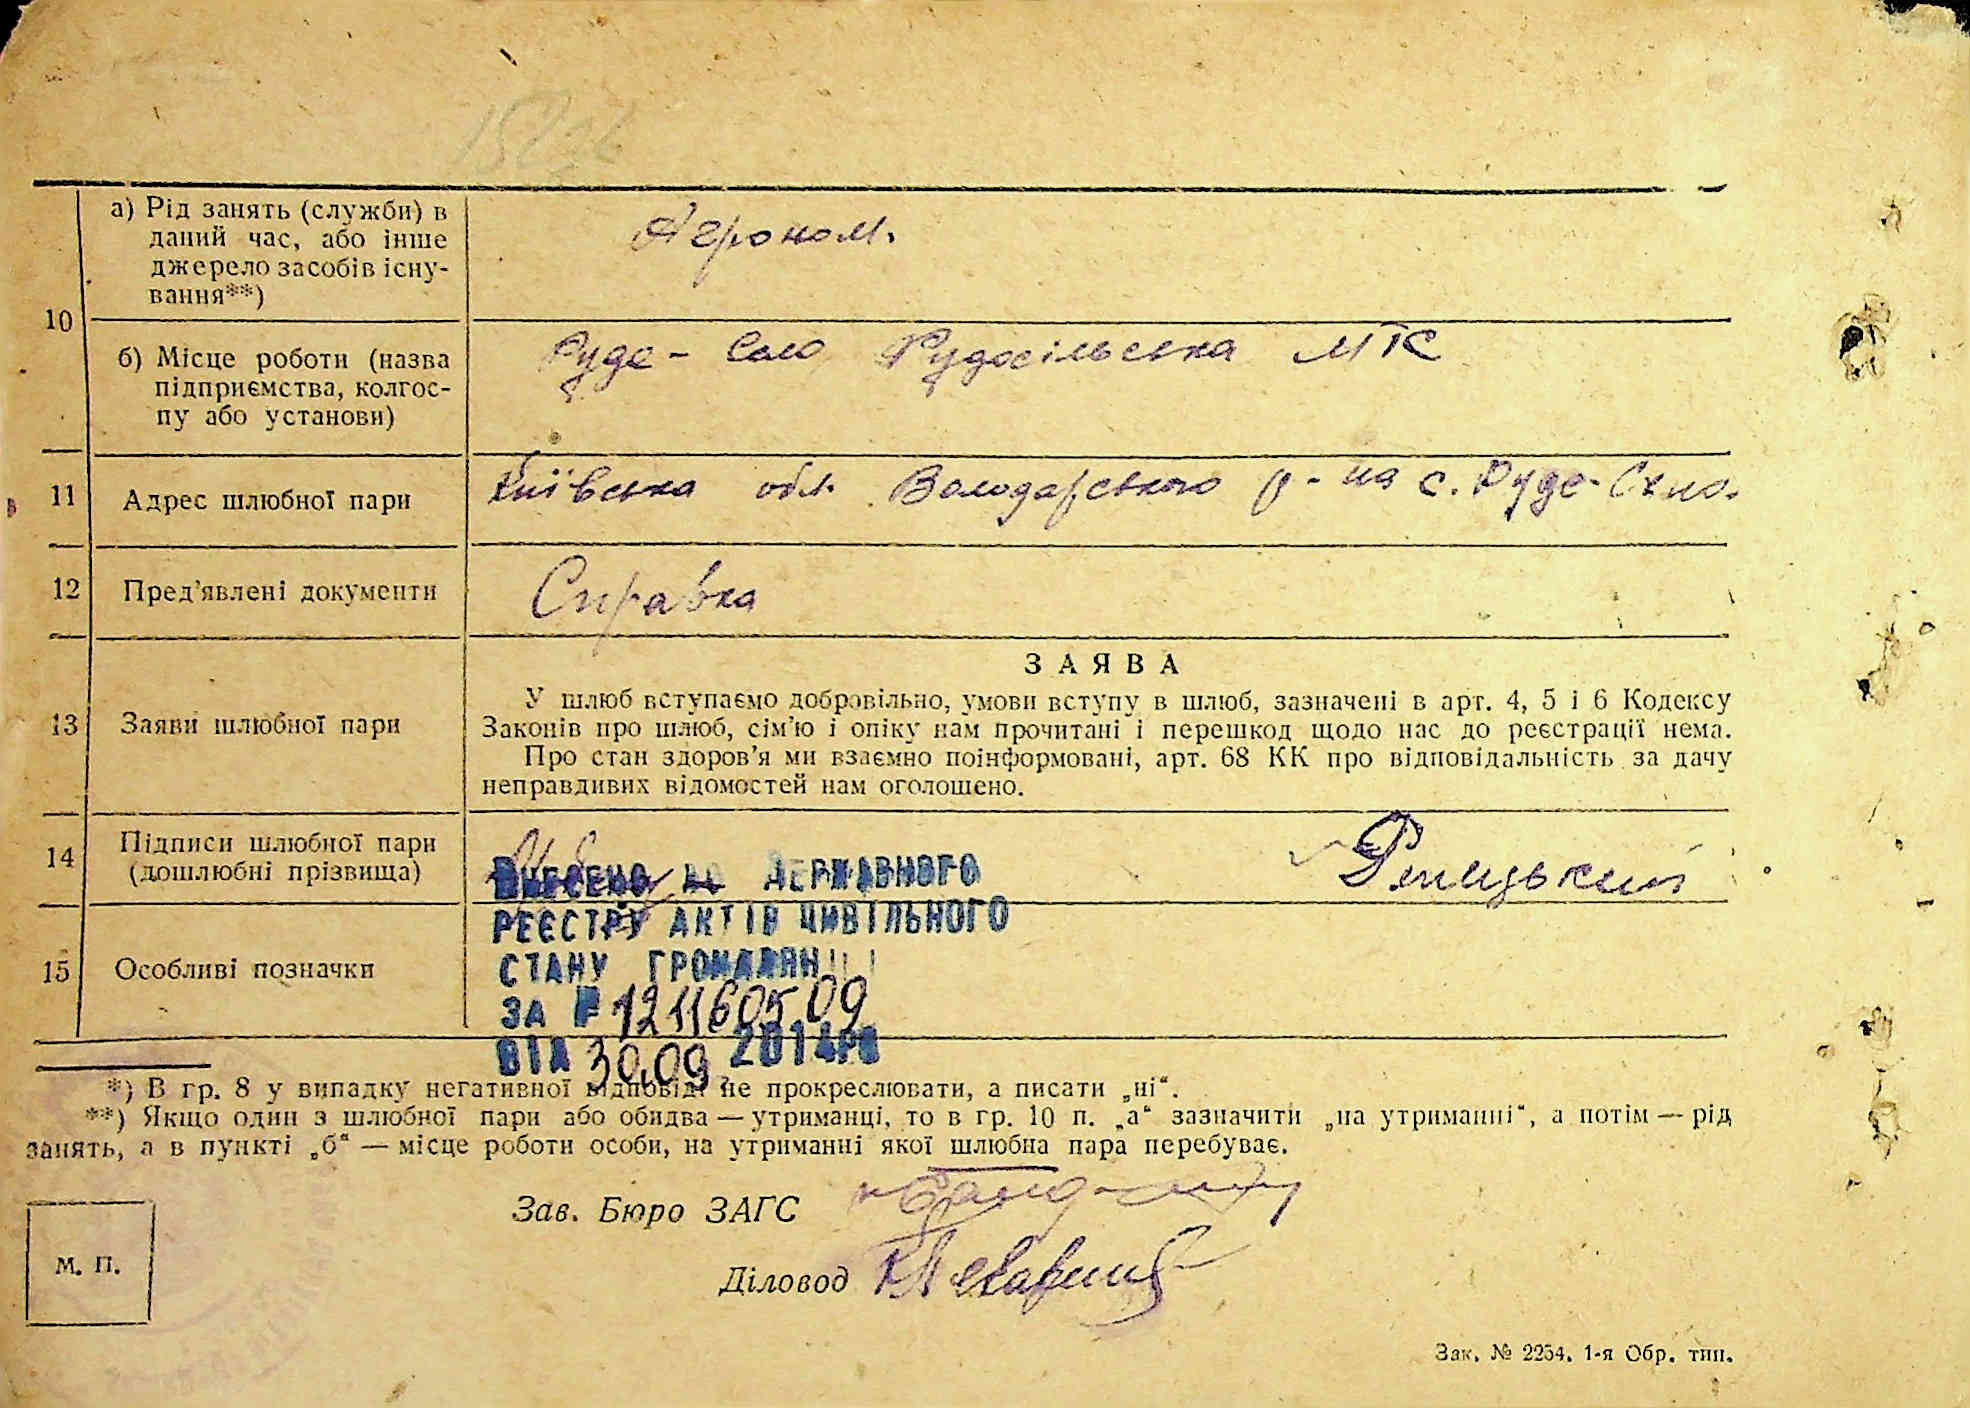 а) Рід занять (служби) в
даний час, або інше
джерело засобів існу-
вання**)
Агроном.
10
б) Місце роботи (назва
підприємства, колгос-
пу або установи)
Руде-Село Рудосільська МТС
11
Адрес шлюбної пари
Київська обл. Володарського р-на с. Руде-Село.
12
Пред'явлені документи
Справка
13
Заяви шлюбної пари
ЗАЯВА
У шлюб вступаємо добровільно, умови вступу в шлюб, зазначені в арт. 4, 5 і 6 Кодексу
Законів про шлюб, сім'ю і опіку нам прочитані і перешкод щодо нас до реєстрації нема.
Про стан здоров'я ми взаємно поінформовані, арт. 68 КК про відповідальність за дачу
неправдивих відомостей нам оголошено.
14
Підписи шлюбної пари
(дошлюбні прізвища)
15
Особливі позначки
ВНЕСЕНО ДО ДЕРЖАВНОГО
РЕЄСТРУ АКТІВ ЦИВІЛЬНОГО
СТАНУ ГРОМАДЯН
ЗА № 121160509
ВІД 30.09. 2014РВ
*) В гр. 8 у випадку негативної відповіді не прокреслювати, а писати „ні“.
**) Якщо один з шлюбної пари або обидва — утриманці, то в гр. 10 п. „а“ зазначити „на утриманні“, а потім — рід
занять, а в пункті „б“ — місце роботи особи, на утриманні якої шлюбна пара перебуває.
Зав. Бюро ЗАГС
Діловод
М. П.
Зак. № 2254. 1-я Обр. тип.